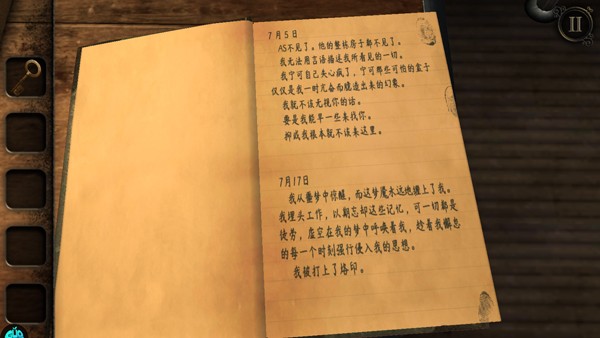 7月5日
AS不见了。他的整栋房子都不见了。
我无法用言语描述我所看见的一切。
我宁可自己失心疯了，宁可那些可怕的盒子
仅仅是我一时兀奋而臆造出来的幻象。
我就不该无视你的话。
要是我能早一些来找你。
抑或我根本就不该来这里。
7月17日
我从噩梦中惊醒，而这梦魇永远地缠上了我。
我埋头工作，以期忘却这些记忆，可一切都是
徒劳，虚空在我的梦中呼唤着我，趁着我懈怠
的每一个时刻强行侵入我的思想。
我被打上了烙印。
II